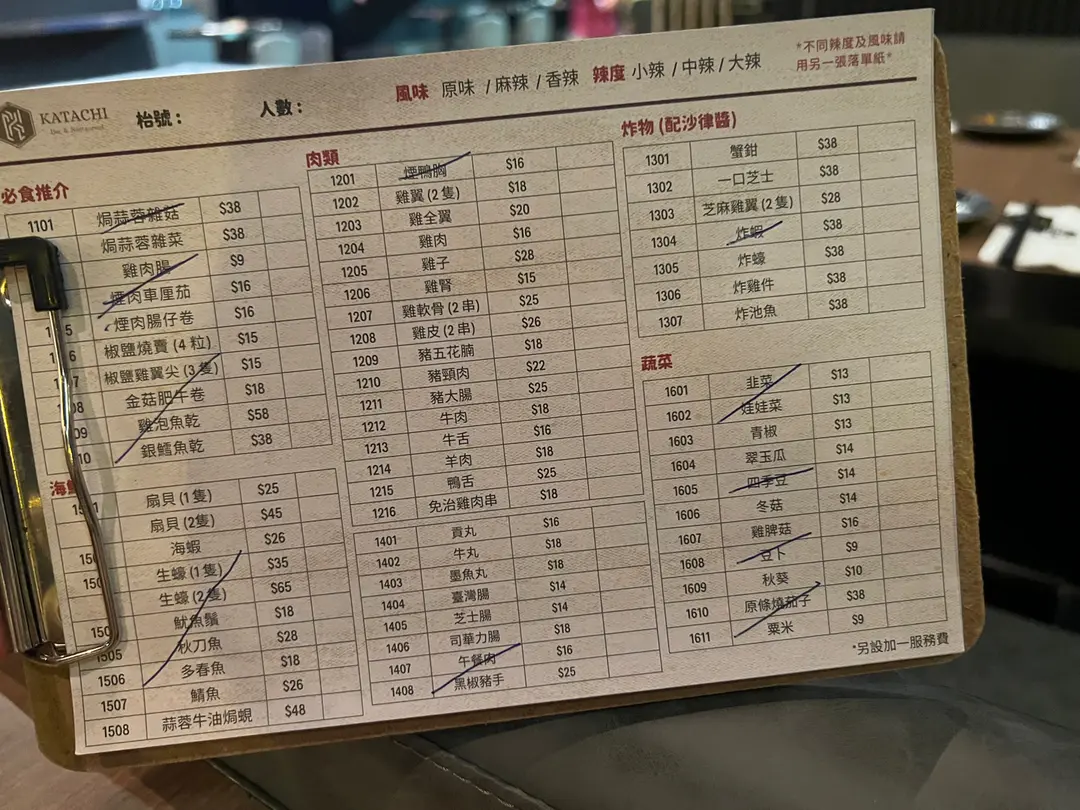 KATACHI
枱號：
人數：
風味 原味 / 麻辣 / 香辣 辣度 小辣 / 中辣 / 大辣
*不同辣度及風味請
用另一張落單紙*
必食推介
1101 焗蒜蓉雜菇 $38
焗蒜蓉雜菜 $38
雞肉腸 $9
煙肉車厘茄 $16
煙肉腸仔卷 $16
椒鹽燒賣 (4 粒) $15
椒鹽雞翼尖 (3 隻) $15
金菇肥牛卷 $18
雞泡魚乾 $58
銀鱈魚乾 $38
扇貝 (1 隻) $25
扇貝 (2隻) $45
海蝦 $26
生蠔 (1 隻) $35
生蠔 (2 隻) $65
魷魚鬚 $18
1505 秋刀魚 $28
1506 多春魚 $18
1507 鯖魚 $26
1508 蒜蓉牛油焗蜆 $48
肉類
1201 煙鴨胸 $16
1202 雞翼 (2 隻) $18
1203 雞全翼 $20
1204 雞肉 $16
1205 雞子 $28
1206 雞腎 $15
1207 雞軟骨 (2 串) $25
1208 雞皮 (2 串) $26
1209 豬五花腩 $18
1210 豬頸肉 $22
1211 豬大腸 $25
1212 牛肉 $18
1213 牛舌 $16
1214 羊肉 $18
1215 鴨舌 $25
1216 免治雞肉串 $18
1401 貢丸 $16
1402 牛丸 $18
1403 墨魚丸 $18
1404 臺灣腸 $14
1405 芝士腸 $14
1406 司華力腸 $18
1407 午餐肉 $16
1408 黑椒豬手 $25
炸物 (配沙律醬)
1301 蟹鉗 $38
1302 一口芝士 $38
1303 芝麻雞翼 (2 隻) $28
1304 炸蝦 $38
1305 炸蠔 $38
1306 炸雞件 $38
1307 炸池魚 $38
蔬菜
1601 韭菜 $13
1602 娃娃菜 $13
1603 青椒 $13
1604 翠玉瓜 $14
1605 四季豆 $14
1606 冬菇 $14
1607 雞脾菇 $16
1608 豆卜 $9
1609 秋葵 $10
1610 原條燒茄子 $38
1611 粟米 $9
*另設加一服務費